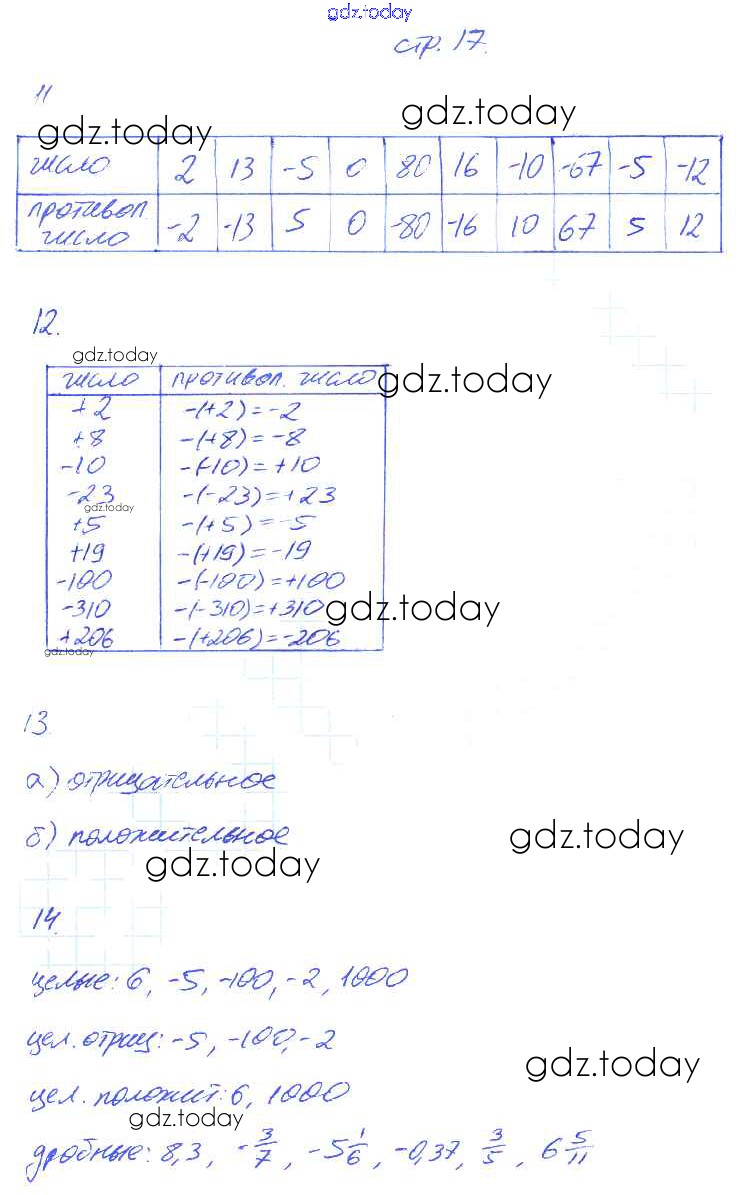 gdz.today
стр. 17.
11
gdz.today
gdz.today
число 2 13 -5 0 80 16 -10 -67 -5 -12
противоп. число -2 -13 5 0 -80 -16 10 67 5 12
12.
gdz.today
число противоп. число
gdz.today
+2 -(+2)=-2
+8 -(+8)=-8
-10 -(-10)=+10
-23 -(-23)=+23
gdz.today
+5 -(+5)=-5
+19 -(+19)=-19
-100 -(-100)=+100
-310 -(-310)=+310
gdz.today
+206 -(+206)=-206
gdz.today
13.
а) отрицательное
б) положительное
gdz.today
gdz.today
14.
целые: 6, -5, -100, -2, 1000
цел. отриц: -5, -100, -2
gdz.today
цел. положит: 6, 1000
gdz.today
дробные: 8,3, -3/7, -5 1/6, -0,37, 3/5, 6 5/11